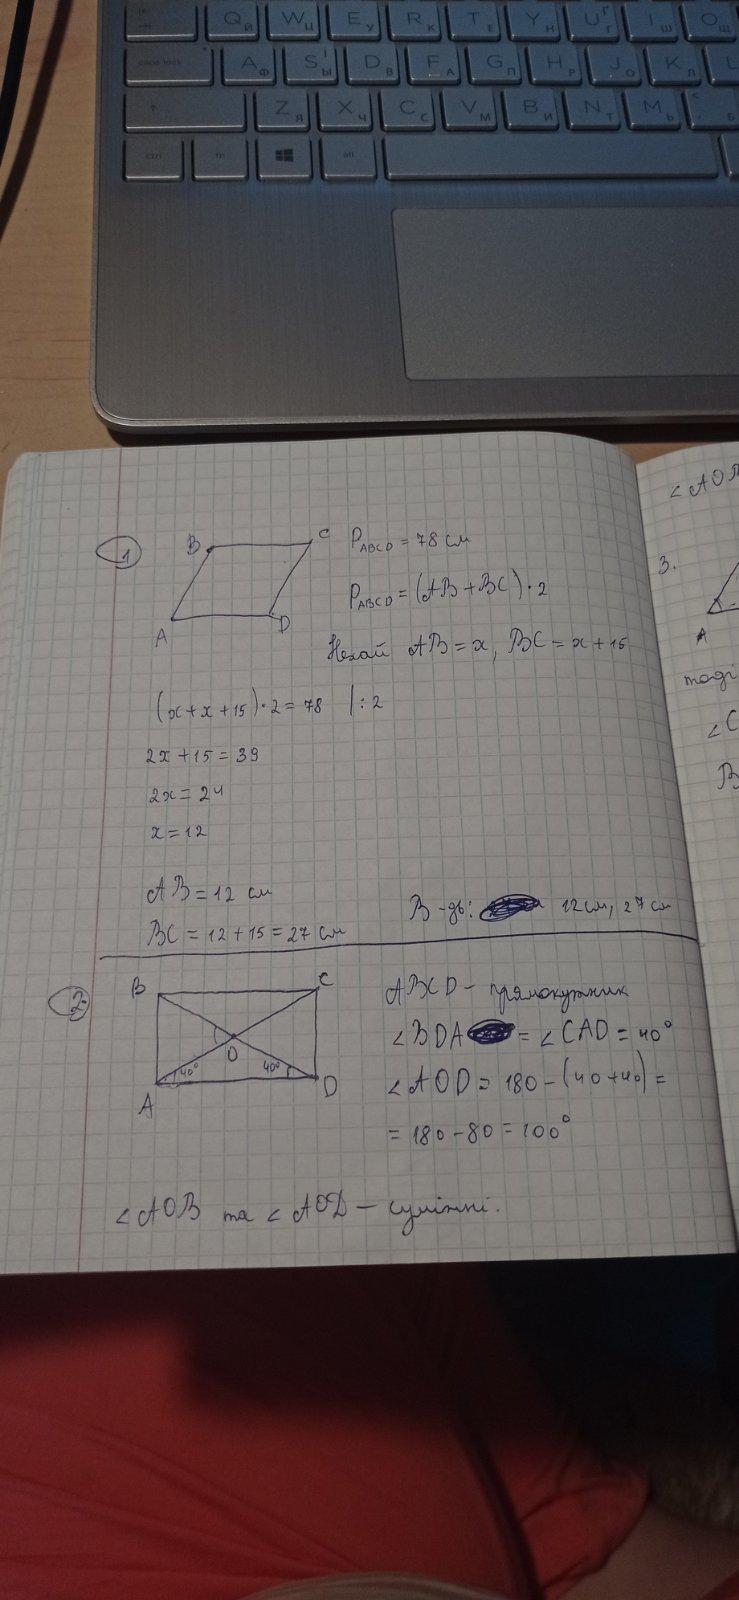 Q Й W Ц E У R К T Е Y Н U Г Ґ I Ш O Щ
caps lock A Ф S Ы І D В F А G П H Р J О K Л L
Z Я X Ч C С V М B И N Т M Ь Б
ctrl fn alt
1
B C
A D
P ABCD = 78 см
P ABCD = (AB + BC) · 2
Нехай AB = x, BC = x + 15
(x + x + 15) · 2 = 78 | : 2
2x + 15 = 39
2x = 24
x = 12
AB = 12 см
BC = 12 + 15 = 27 см
В-дь: 12 см, 27 см
2
B C
O
40° 40°
A D
ABCD – прямокутник
∠BDA = ∠CAD = 40°
∠AOD = 180 – (40 + 40) =
= 180 – 80 = 100°
∠AOB та ∠AOD – суміжні.
∠AO
3.
A
тоді
∠C